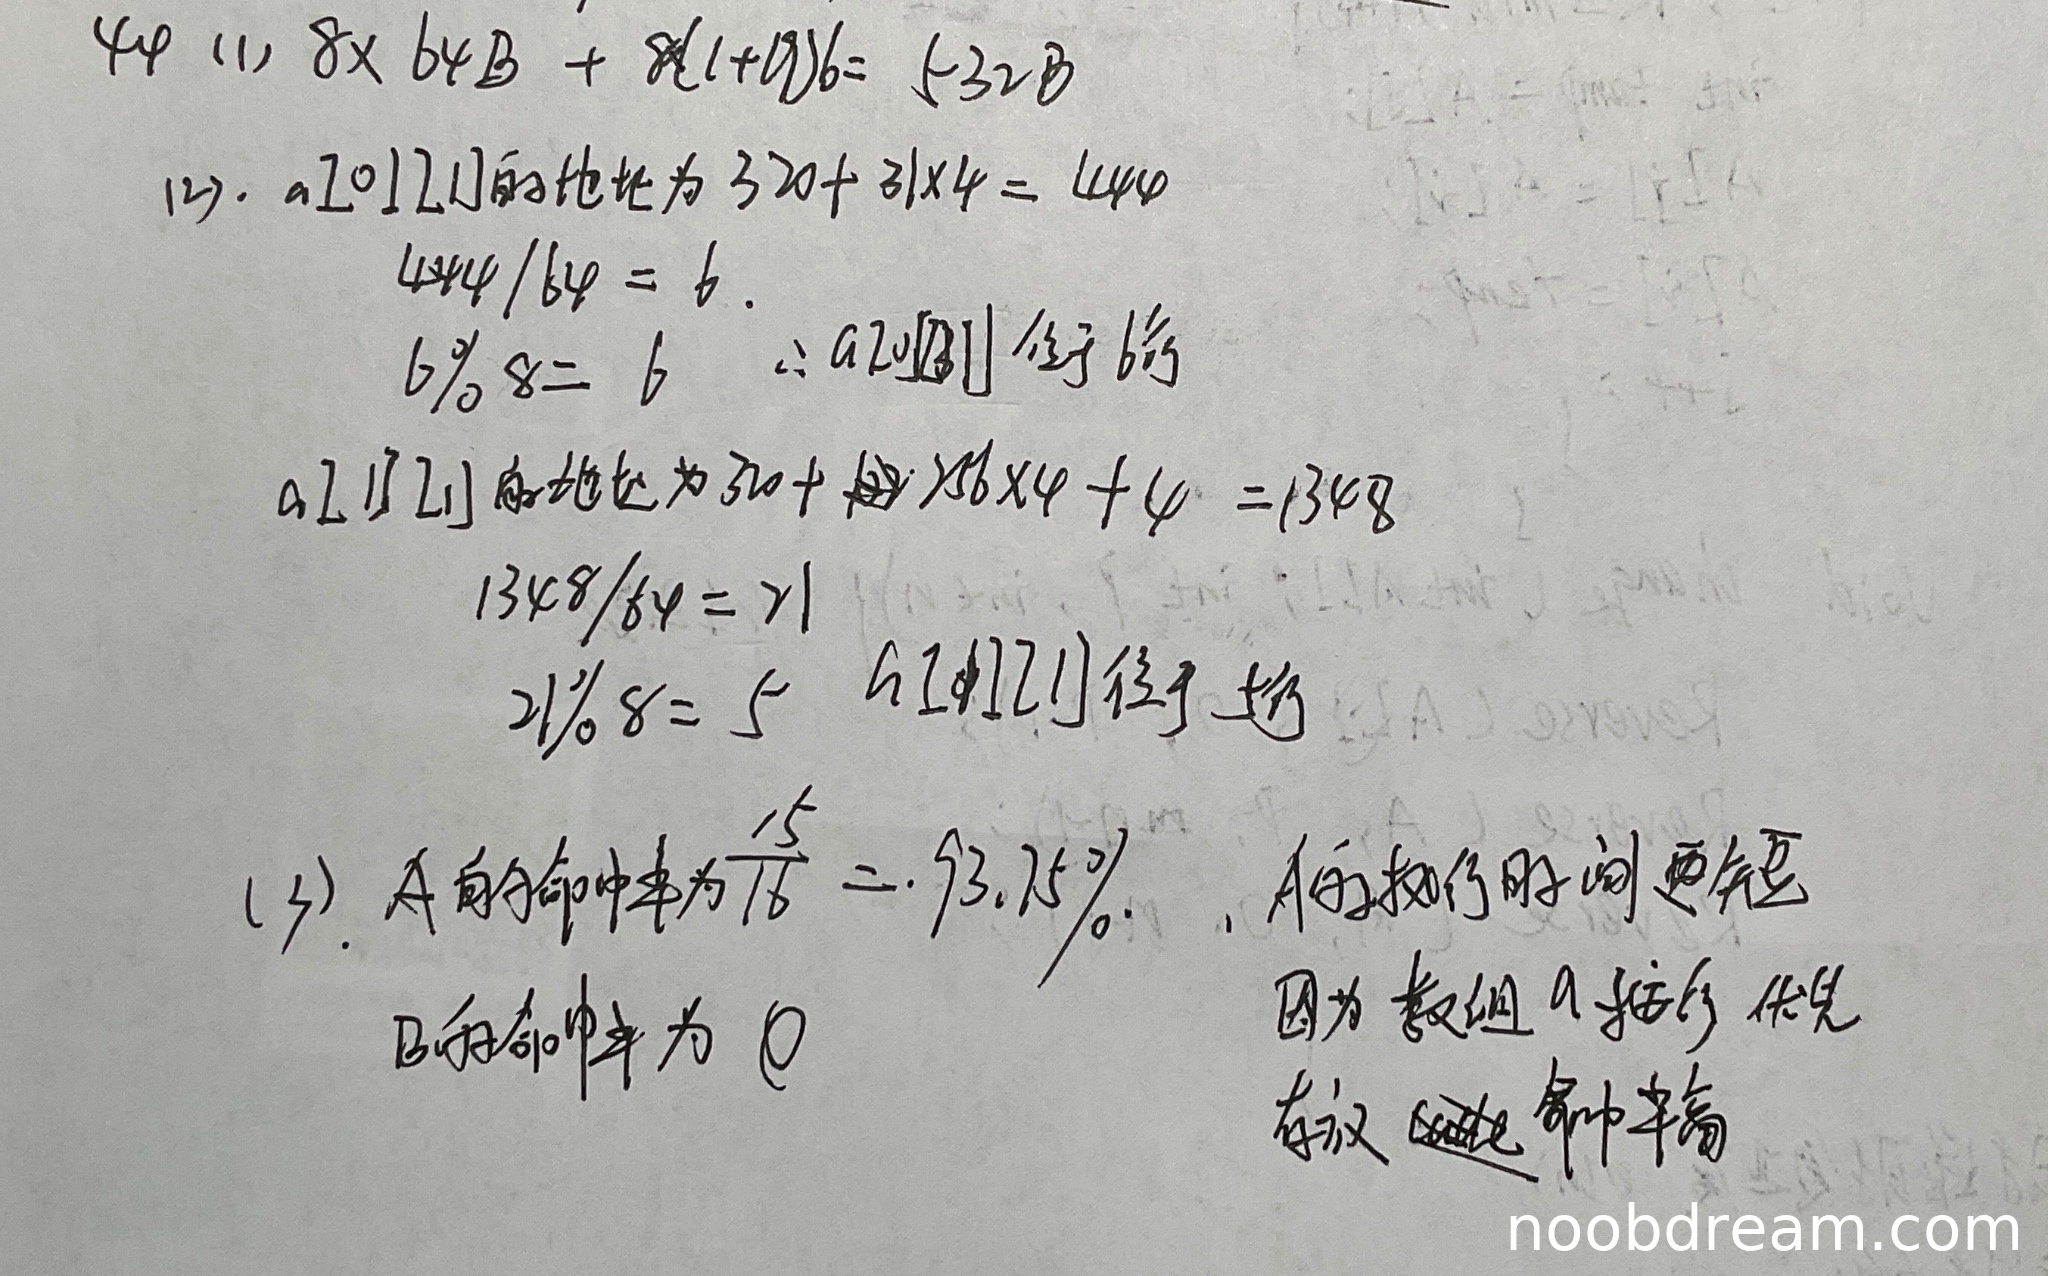 44 (1) 8×64B + 8×(1+19)b= 532B
(2). a[0][1]的地址为 320+31×4=444
444/64=6.
6%8=6 ∴a[0][31]位于6行
a[1][1]的地址为320+256×4+4=1348
1348/64=21
21%8=5 a[1][1]位于5行
(3). A的命中率为15/16=93.75%. , A的执行时间更短
因为数组a按行优先
B的命中率为0
存放 命中率高
noobdream.com